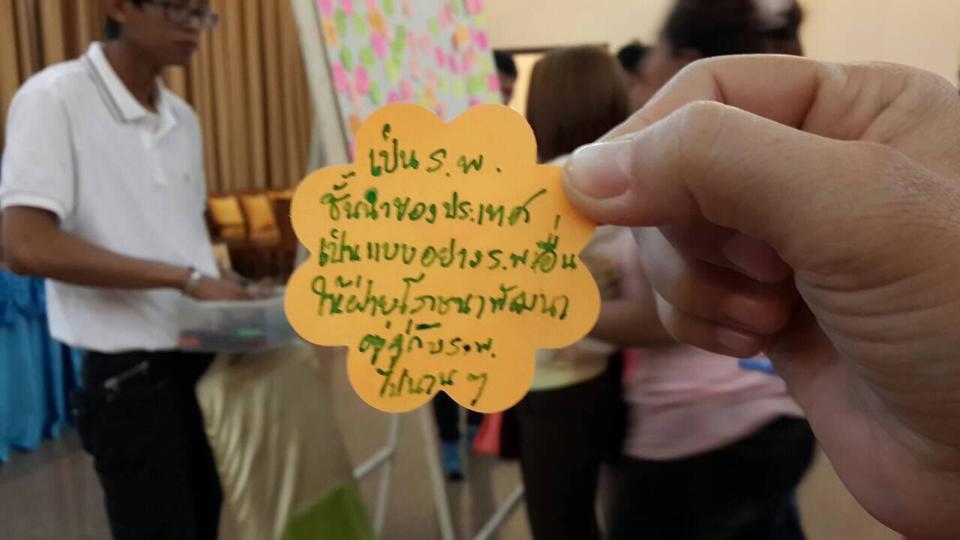 เป็น ร.พ.
ชั้นนำของประเทศ
เป็นแบบอย่าง ร.พ.อื่น
ให้ฝ่ายโภชนาพัฒนา
อยู่คู่กับ ร.พ.
ไปนาน ๆ